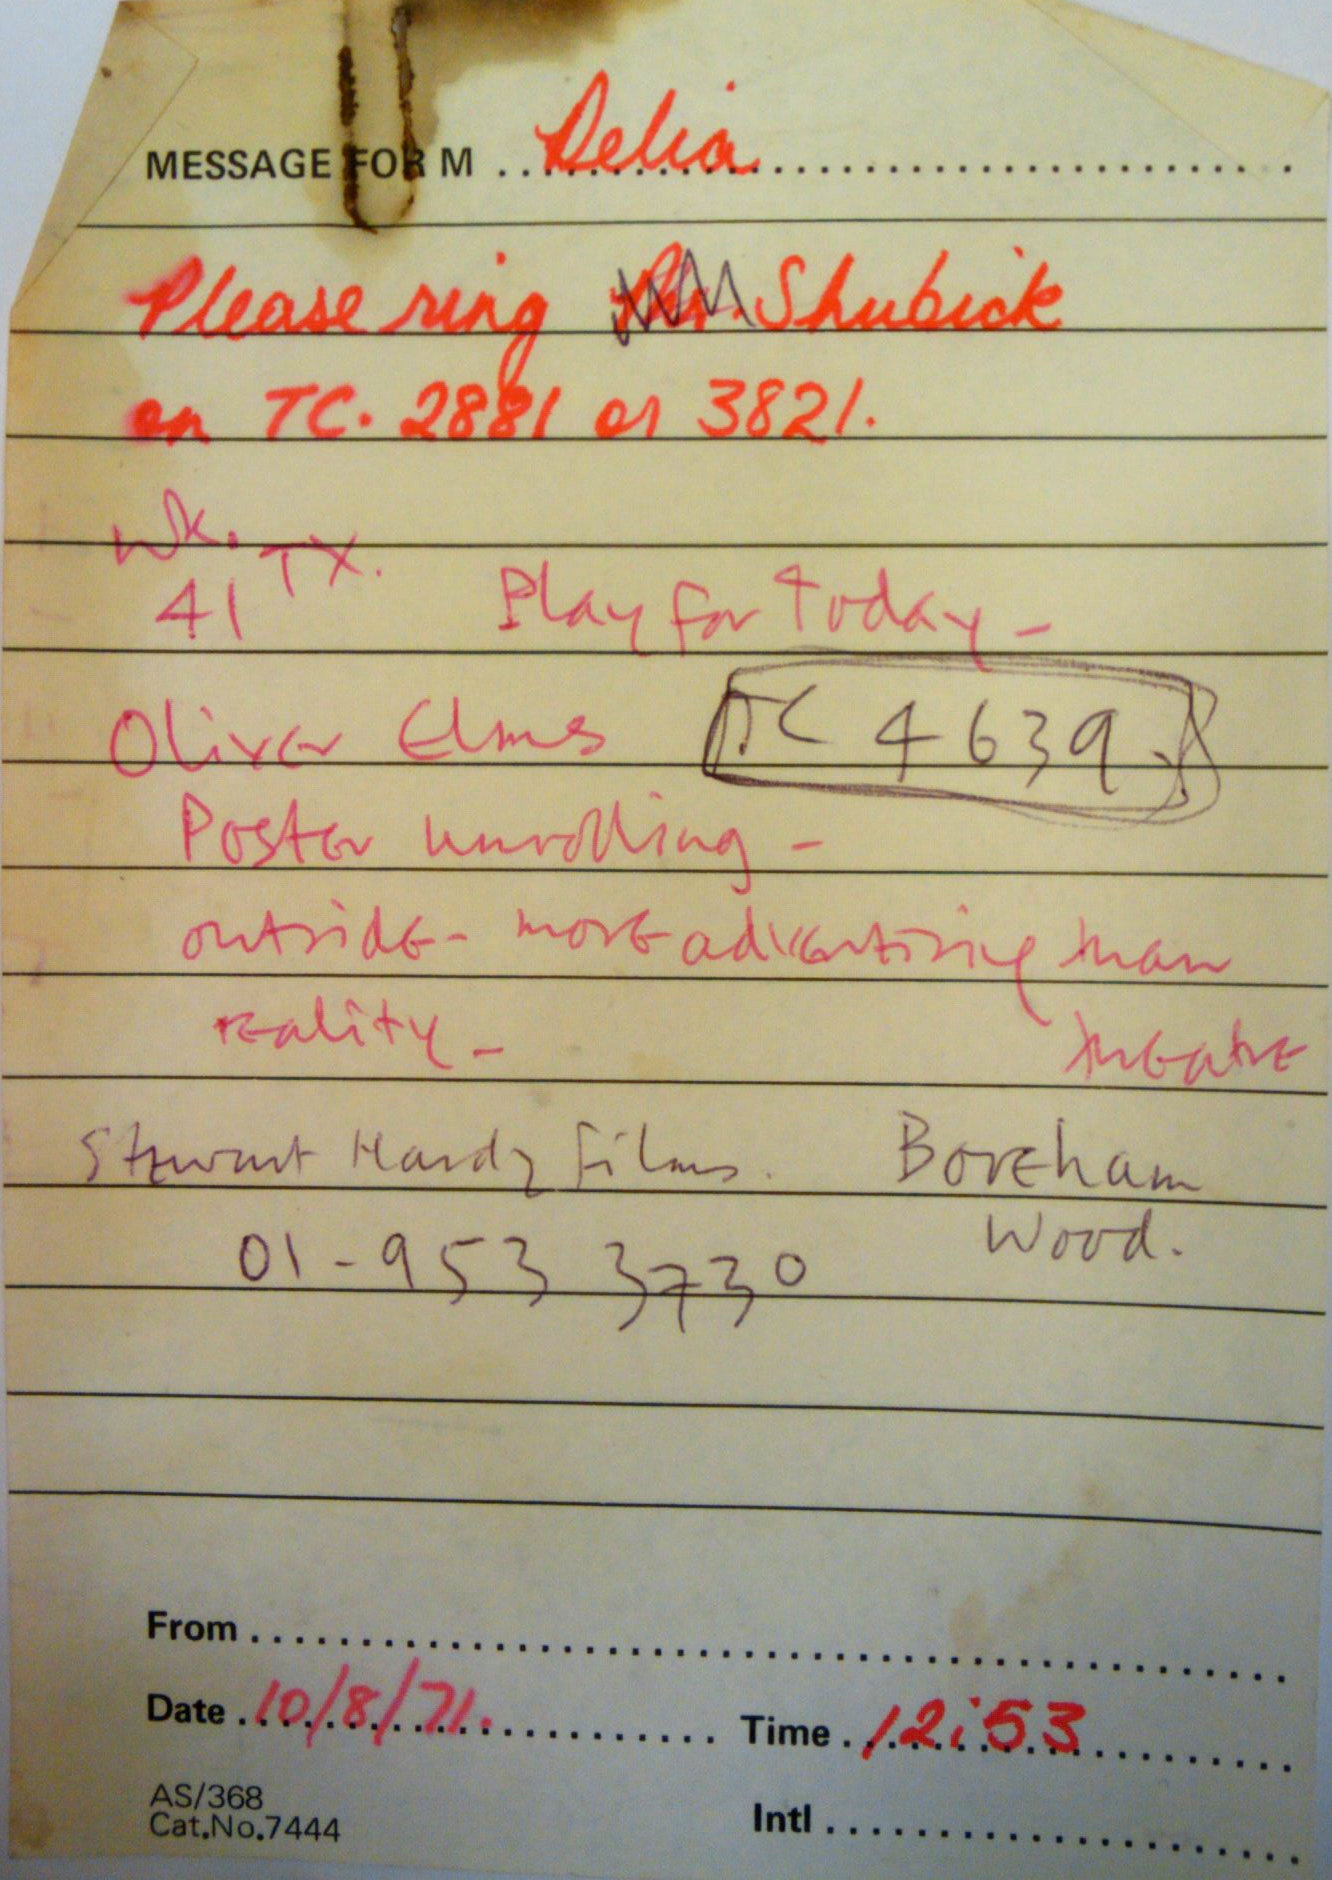 MESSAGE FOR M Delia
Please ring Shubick
on TC. 2881 or 3821.
Wk. TX.
41 Play for Today -
Oliver Elmes TC 4639.
Poster unrolling -
outside - more advertising than
reality - theatre
Stewart Hardy Films. Boreham
Wood.
01-953 3730
From
Date 10/8/71. Time 12:53
AS/368
Cat.No.7444 Intl